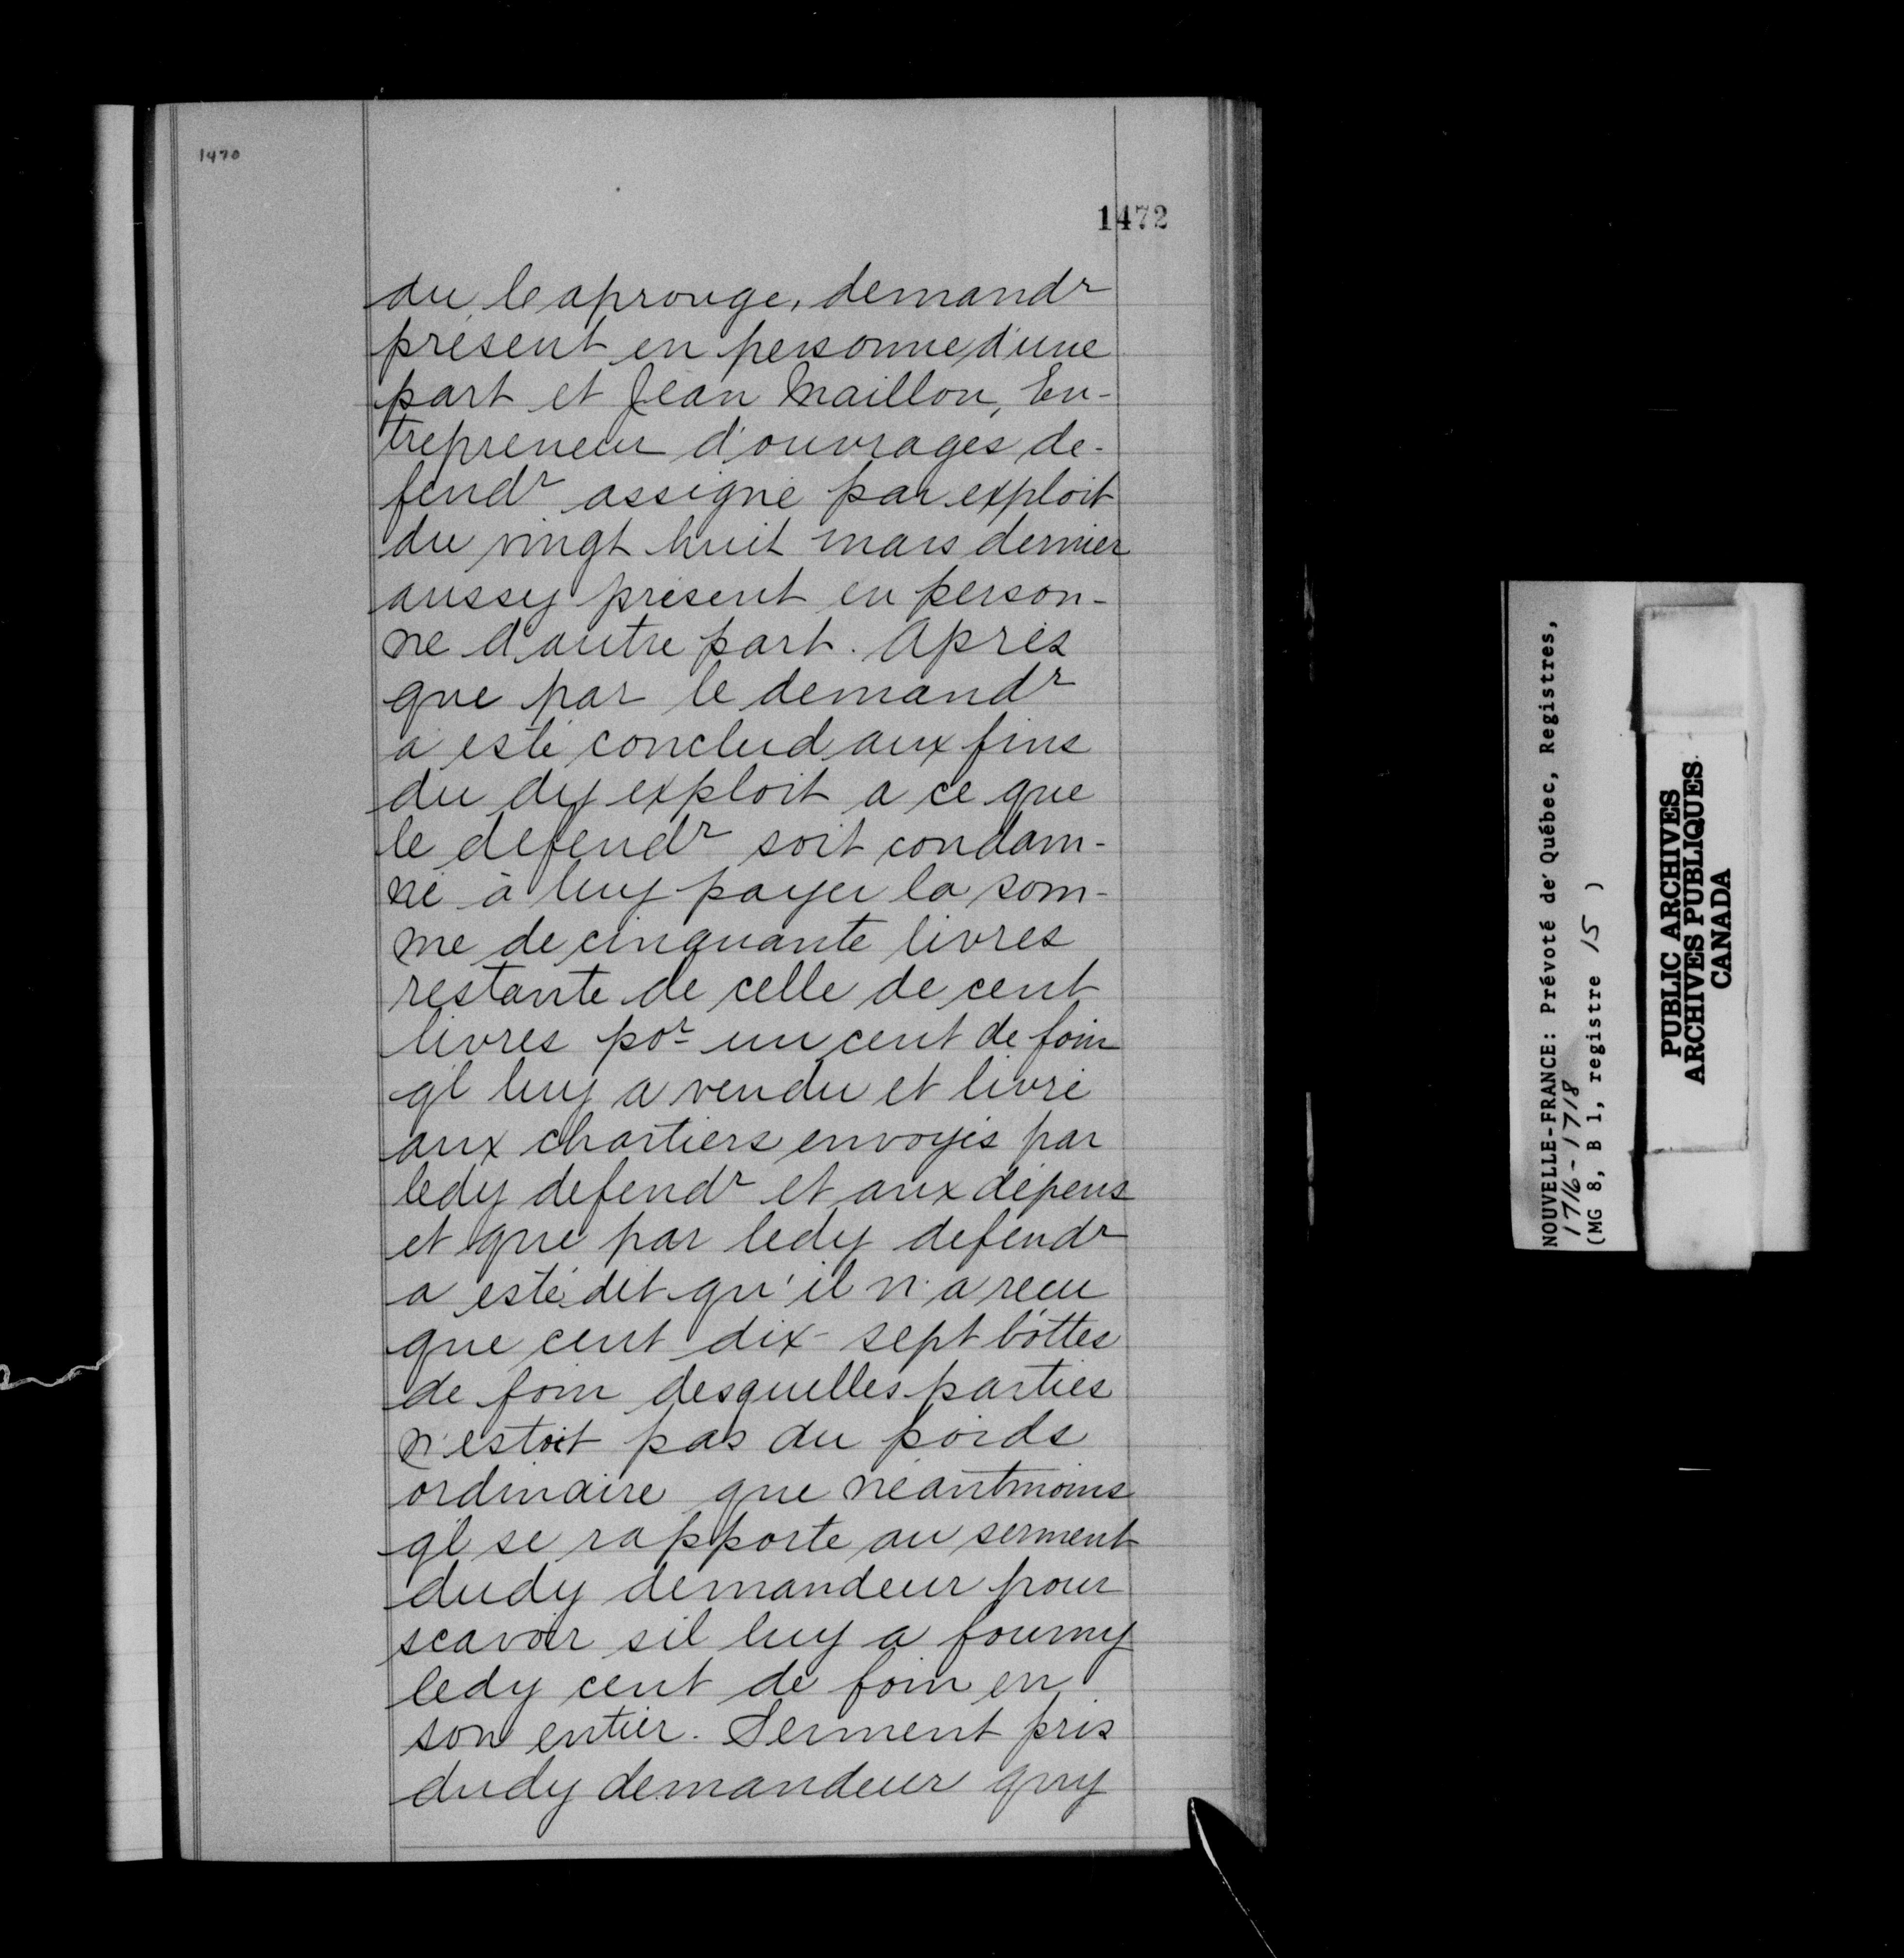 1470
1472
du Caprouge, demandr
présent en personne d'une
part et Jean Maillou, En-
trepreneur d'ouvrages de-
fendr assigné par exploit
du vingt huit mars dernier
aussy présent en person-
ne d'autre part. Après
que par le demandr
a esté conclud aux fins
du dy exploit a ce que
le défendr soit condam-
né à luy payer la som-
me de cinquante livres
restante de celle de cent
livres por un cent de foin
ql luy a vendu et livré
aux chartiers envoyés par
ledy defendr et aux dépens
et que par ledy defendr
a esté dit qu'il n'a recu
que cent dix-sept bottes
de foin desquelles parties
n'estoit pas du poids
ordinaire que néantmoins
ql se rapporte au serment
dudy demandeur pour
scavoir sil luy a fourny
ledy cent de foin en
son entier. Serment pris
dudy demandeur quy
NOUVELLE-FRANCE: Prévoté de Québec, Registres,
1716-1718
(MG 8, B 1, registre 15 )
PUBLIC ARCHIVES
ARCHIVES PUBLIQUES
CANADA